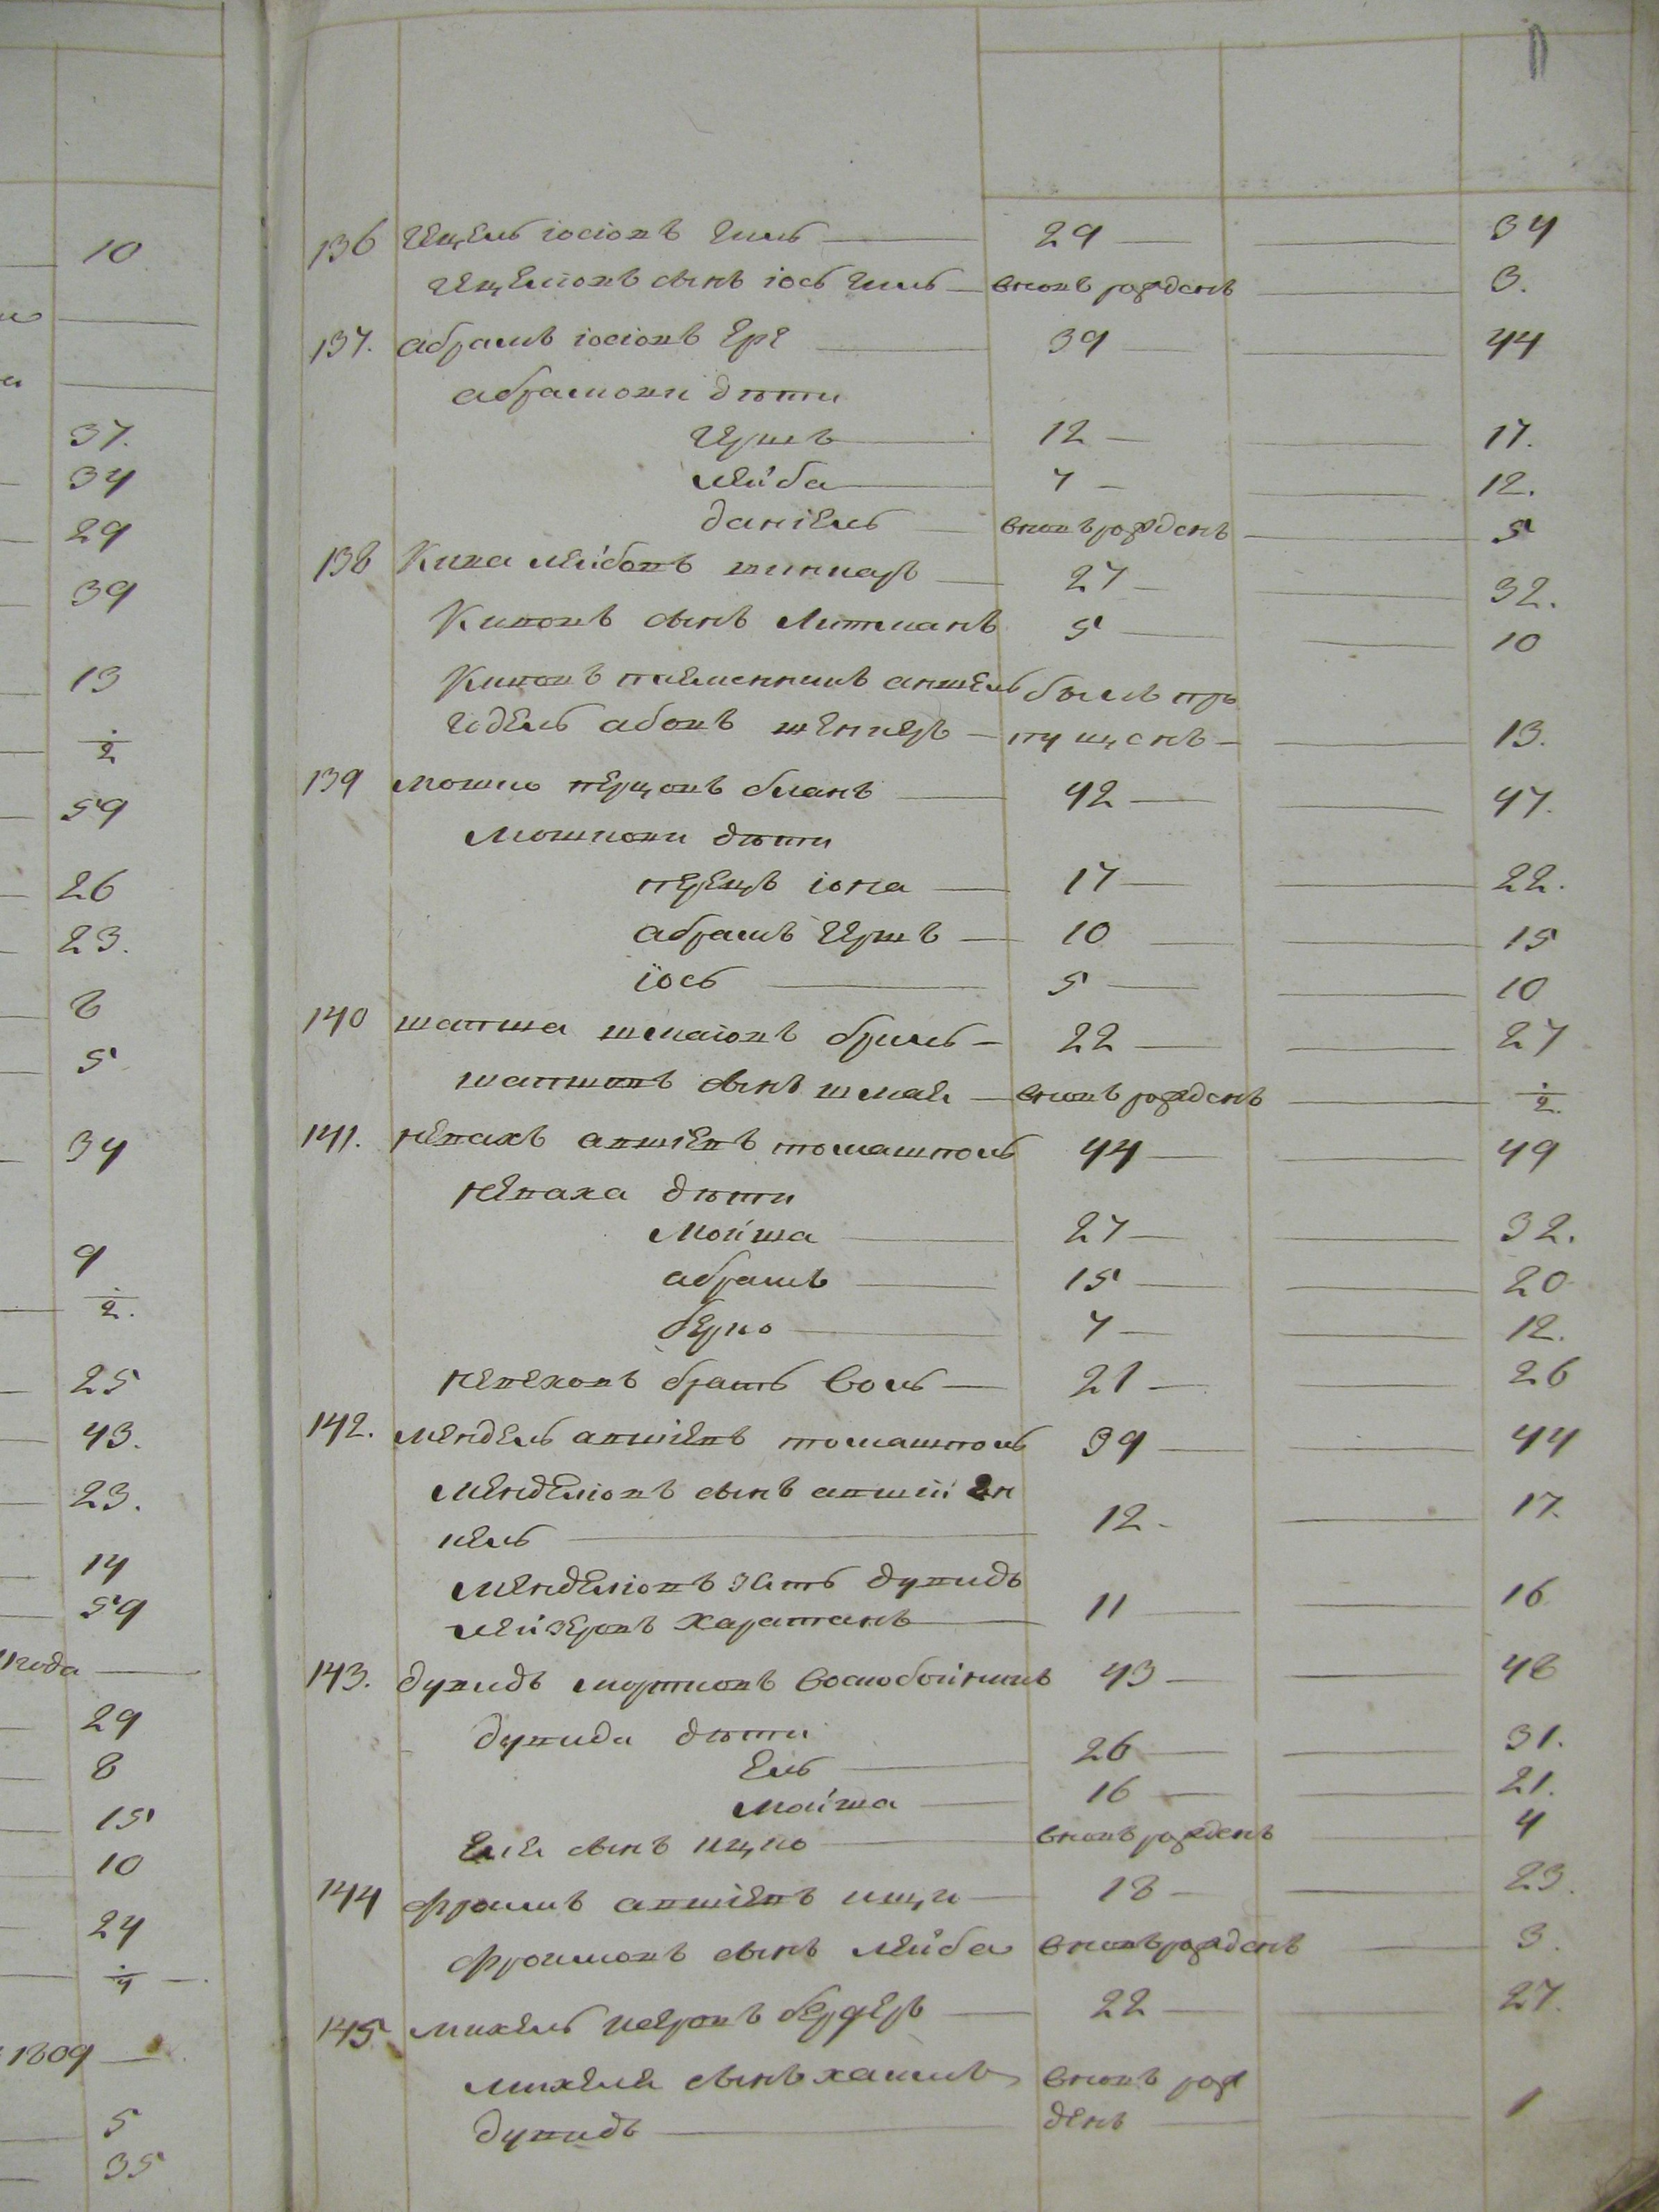 10
37.
34
29
39
13
1/2
59
26
23.
8
5
34
9
1/2.
25
43.
23.
14
59
года
29
8
15
10
24
1809
5
35
136 Гецель іосіовъ Гиль — 29 — 34
Гецеліовъ сынъ іось Гиль — вновъ рожденъ — 3.
137. абрамъ іосіовъ Ерг — 39 — 44
абрамови дѣти
Гершъ — 12 — 17.
лейба — 7 — 12.
даніель — вновъ рожденъ — 5
138 Кива лейбовъ — 27 — 32.
Кивовъ сынъ Литманъ 5 — 10
Кивовъ племенникъ аншель былъ про
Юдель абовъ — пущенъ — 13.
139 мошко перцовъ бланъ — 42 — 47.
Мошкови дѣти
перецъ іона — 17 — 22.
абрамъ Гершъ — 10 — 15
іось — 5 — 10
140 шапша шмаіовъ бриль — 22 — 27
шапшовъ сынъ шмая — вновъ рожденъ — 1/2.
141. невахъ овшіевъ томашполь 44 — 49
неваха дѣти
Мойша — 27 — 32.
абрамъ — 15 — 20
берко — 7 — 12.
невеховъ братъ Воль — 21 — 26
142. мендель овшіевъ томашполь 39 — 44
Менделіовъ сынъ овшій Ян
кель — 12 — 17.
Менделіовъ зять дувидъ
лейзеровъ Харатанъ — 11 — 16
143. дувидъ мортковъ Воскобойникъ 43 — 48
дувида дѣти
Ель — 26 — 31.
Мойша — 16 — 21.
Еля сынъ ицко — вновъ рожденъ — 4
144 фроимъ овшіевъ — 18 — 23.
фроимовъ сынъ лейба вновъ рожденъ — 3.
145 михель — 22 — 27.
михеля сынъ хаимъ вновъ рож
дувидъ — денъ — 1